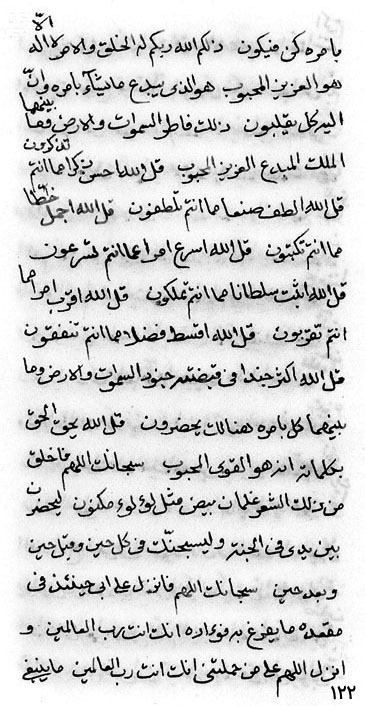 بامره كن فيكون ذلكم الله ربكم له الخلق والامر لا اله الّا
هو العزيز المحبوب هو الذى يبدع ما يشآء بامره وانّ
اليه كل يقلبون ذلك فاطر السموات والارض وما بينهما
الملك المبدع العزيز المحبوب قل الله احسن ذكرا مما انتم تذكرون
قل الله الطف صنعا مما انتم تلطفون قل الله اجمل خطّا
مما انتم تكتبون قل الله اسرع امرا عما انتم تسرعون
قل الله اثبت سلطانا مما انتم تملكون قل الله اقرب امرا مما
انتم تقربون قل الله اقسط فضلا مما انتم تنفقون
قل الله اكثر جندا فى قبضته جنود السموات والارض وما
بينهما كل بامره هنالك يحضرون قل الله يحق الحق
بكلماته انه هو القوى المحبوب سبحانك اللهم فاخلق
من ذلك الشعر غلمان بيض مثل لؤلوء مكنون ليحضرن
بين يدى فى الجنة وليسبحنّك فى كل حين وقبل حين
وبعد حين سبحانك اللهم فانزل على ابى حينئذ فى
مقعده ما يفرغ به فؤاده انك انت رب العالمين و
انزل اللهم على من حملتنى انك انت رب العالمين ما ينبغى
١٢٢